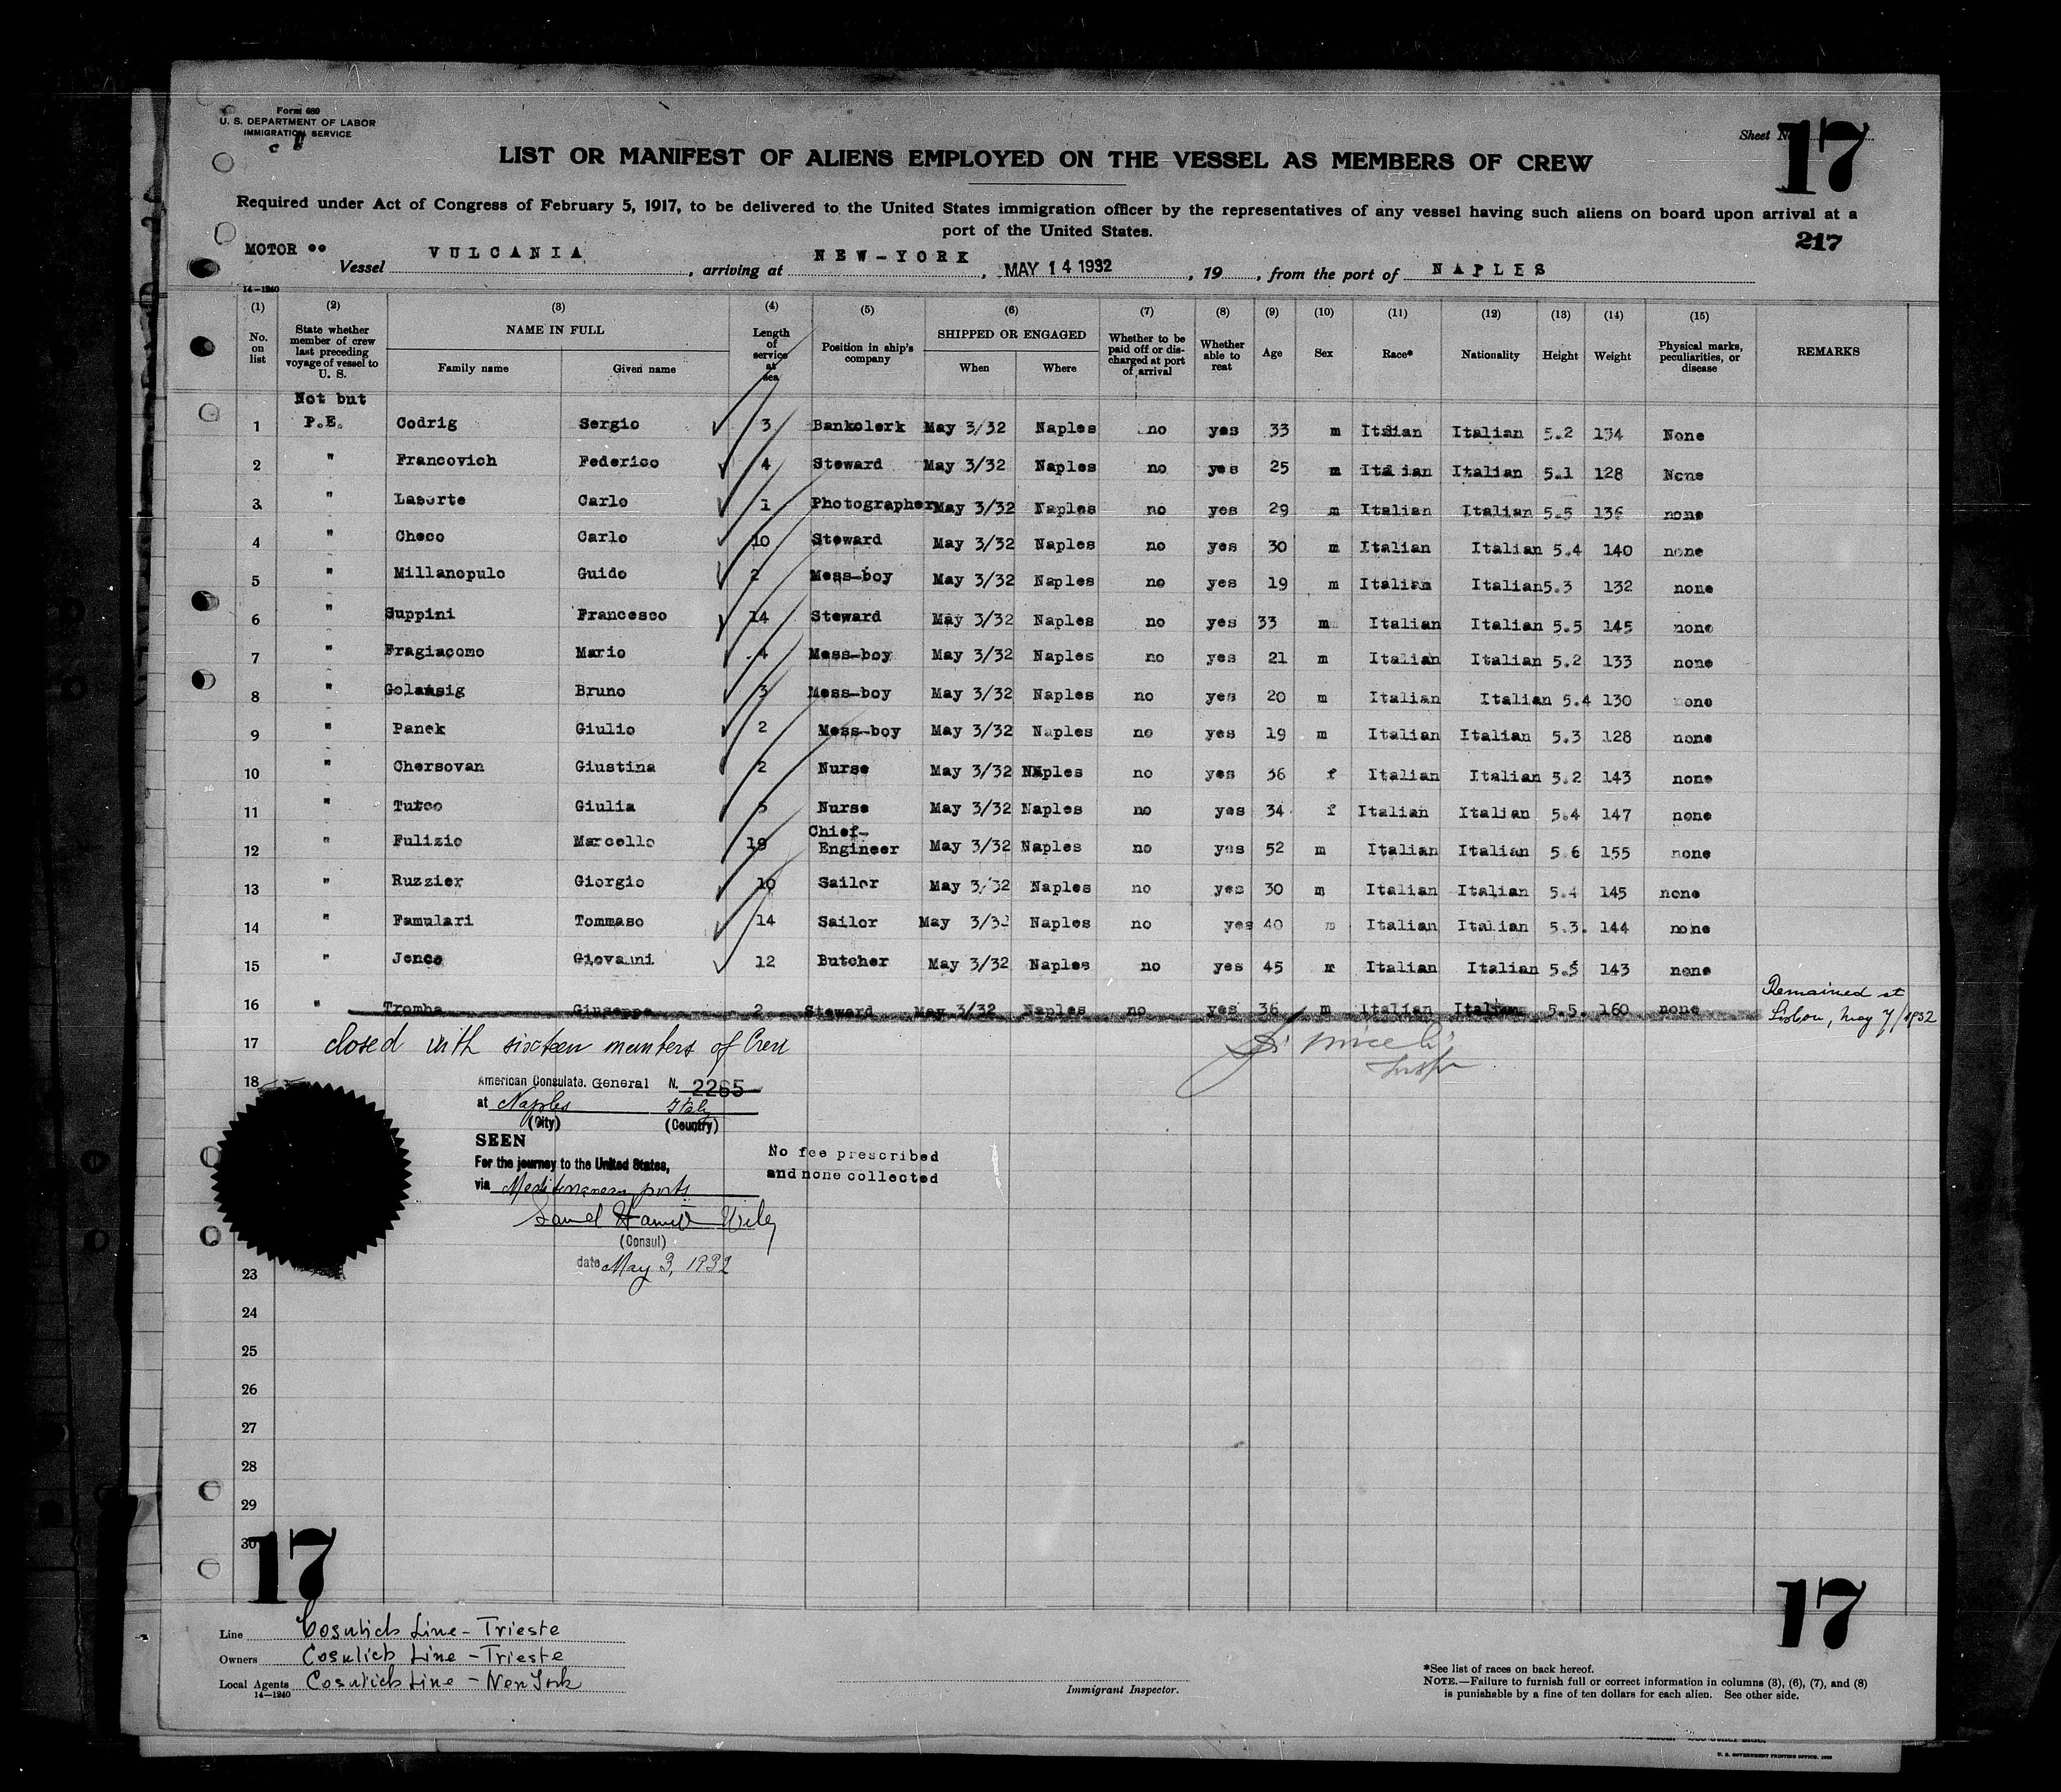 Form 680
U. S. DEPARTMENT OF LABOR
IMMIGRATION SERVICE
Sheet No. 17
LIST OR MANIFEST OF ALIENS EMPLOYED ON THE VESSEL AS MEMBERS OF CREW
Required under Act of Congress of February 5, 1917, to be delivered to the United States immigration officer by the representatives of any vessel having such aliens on board upon arrival at a
port of the United States.
217
MOTOR
Vessel VULCANIA, arriving at NEW-YORK, MAY 14 1932, 19, from the port of NAPLES
14—1240
(1) (2) (3) (4) (5) (6) (7) (8) (9) (10) (11) (12) (13) (14) (15)
No. on list State whether member of crew last preceding voyage of vessel to U. S. NAME IN FULL Family name Given name Length of service at sea Position in ship's company SHIPPED OR ENGAGED When Where Whether to be paid off or discharged at port of arrival Whether able to read Age Sex Race* Nationality Height Weight Physical marks, peculiarities, or disease REMARKS
Not but
1 P.E. Codrig Sergio 3 Bankclerk May 3/32 Naples no yes 33 m Italian Italian 5.2 134 None
2 " Francovich Federico 4 Steward May 3/32 Naples no yes 25 m Italian Italian 5.1 128 None
3 " Lasorte Carlo 1 Photographer May 3/32 Naples no yes 29 m Italian Italian 5.5 136 none
4 " Checo Carlo 10 Steward May 3/32 Naples no yes 30 m Italian Italian 5.4 140 none
5 " Millanopulo Guido 2 Mess-boy May 3/32 Naples no yes 19 m Italian Italian 5.3 132 none
6 " Suppini Francesco 14 Steward May 3/32 Naples no yes 33 m Italian Italian 5.5 145 none
7 " Fragiacomo Mario 4 Mess-boy May 3/32 Naples no yes 21 m Italian Italian 5.2 133 none
8 " Bruno 3 Mess-boy May 3/32 Naples no yes 20 m Italian Italian 5.4 130 none
9 " Panek Giulio 2 Mess-boy May 3/32 Naples no yes 19 m Italian Italian 5.3 128 none
10 " Chersovan Giustina 2 Nurse May 3/32 Naples no yes 36 f Italian Italian 5.2 143 none
11 " Giulia 5 Nurse May 3/32 Naples no yes 34 f Italian Italian 5.4 147 none
12 " Fulizio Marcello 19 Chief-Engineer May 3/32 Naples no yes 52 m Italian Italian 5.6 155 none
13 " Ruzzier Giorgio 10 Sailor May 3/32 Naples no yes 30 m Italian Italian 5.4 145 none
14 " Famulari Tommaso 14 Sailor May 3/32 Naples no yes 40 m Italian Italian 5.3. 144 none
15 " Jenco Giovanni 12 Butcher May 3/32 Naples no yes 45 m Italian Italian 5.5 143 none
16 " Tromba Giuseppe 2 Steward May 3/32 Naples no yes 36 m Italian Italian 5.5. 160 none Remained at Lisbon, May 7/1932
17 Closed with sixteen members of Crew
18
American Consulate. General N. 2265
at Naples Italy
(City) (Country)
SEEN
For the journey to the United States,
via Mediterranean ports
No fee prescribed
and none collected
(Consul)
date May 3, 1932
23
24
25
26
27
28
29
30
17
17
Line Cosulich Line - Trieste
Owners Cosulich Line - Trieste
Local Agents Cosulich Line - New York
14—1240
Immigrant Inspector.
*See list of races on back hereof.
NOTE.—Failure to furnish full or correct information in columns (3), (6), (7), and (8)
is punishable by a fine of ten dollars for each alien. See other side.
U. S. GOVERNMENT PRINTING OFFICE